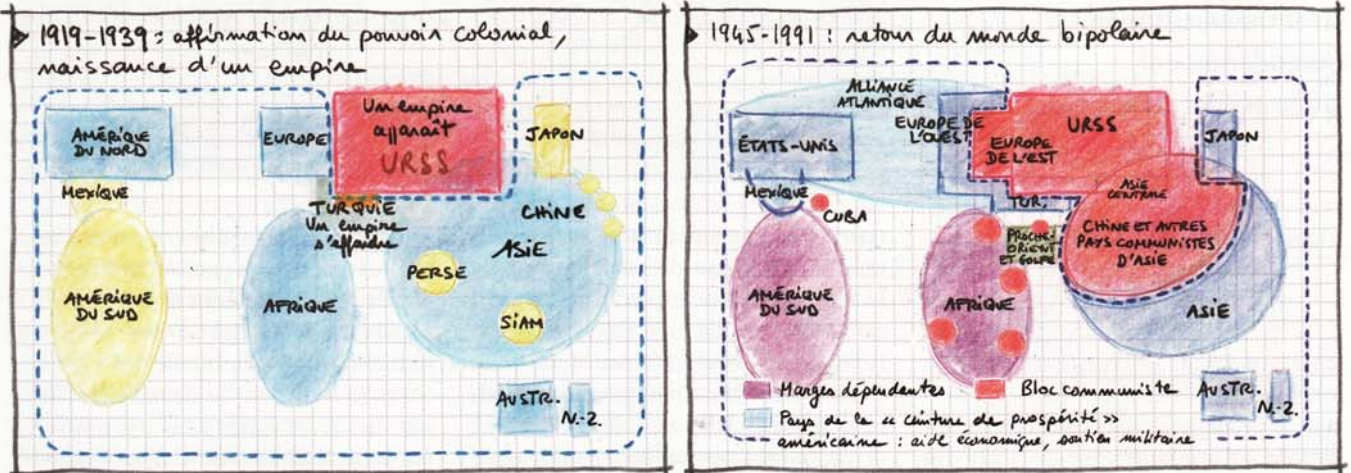 1919-1939 : affirmation du pouvoir colonial,
naissance d'un empire
AMÉRIQUE
DU NORD
EUROPE
Un empire
apparaît
URSS
JAPON
MEXIQUE
TURQUIE
Un empire
s'effondre
CHINE
ASIE
PERSE
AMÉRIQUE
DU SUD
AFRIQUE
SIAM
AUSTR.
N.-Z.
1945-1991 : retour du monde bipolaire
ALLIANCE
ATLANTIQUE
ÉTATS-UNIS
EUROPE DE
L'OUEST
EUROPE
DE L'EST
URSS
JAPON
MEXIQUE
CUBA
TUR.
ASIE
CENTRALE
PROCHE-
ORIENT
ET GOLFE
CHINE ET AUTRES
PAYS COMMUNISTES
D'ASIE
AMÉRIQUE
DU SUD
AFRIQUE
ASIE
AUSTR.
N.-Z.
Marges dépendantes
Bloc communiste
Pays de la « ceinture de prospérité »
américaine : aide économique, soutien militaire